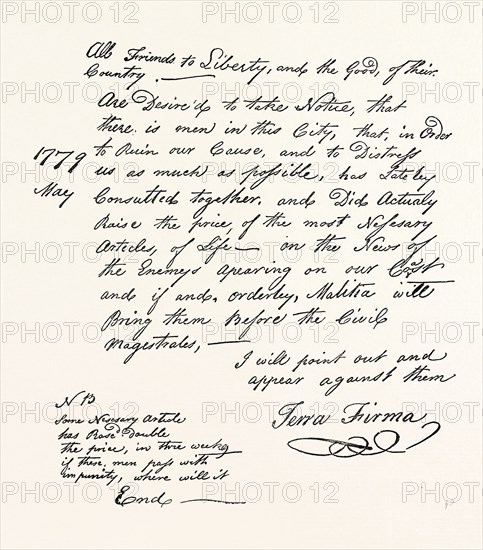 All Friends to Liberty, and the Good, of their
Country.
Are Desire'd to take Notice, that
there is men in this City, that, in Order
to Ruin our Cause, and to Distress
us as much as possible, has Lateley
Consulted together, and Did Actualy
Raise the price, of the most Nesesary
Articles, of Life — on the News of
the Enemeys apearing on our Coast
and if and, orderley, Malitia will
Bring them Before the Civil
Magestrates, —
I will point out and
appear against them
Terra Firma
1779
May
N B
Some Nesesary article
has Rose double
the price, in three weeks
if these men pass with
impunity, where will it
End —
PHOTO 12